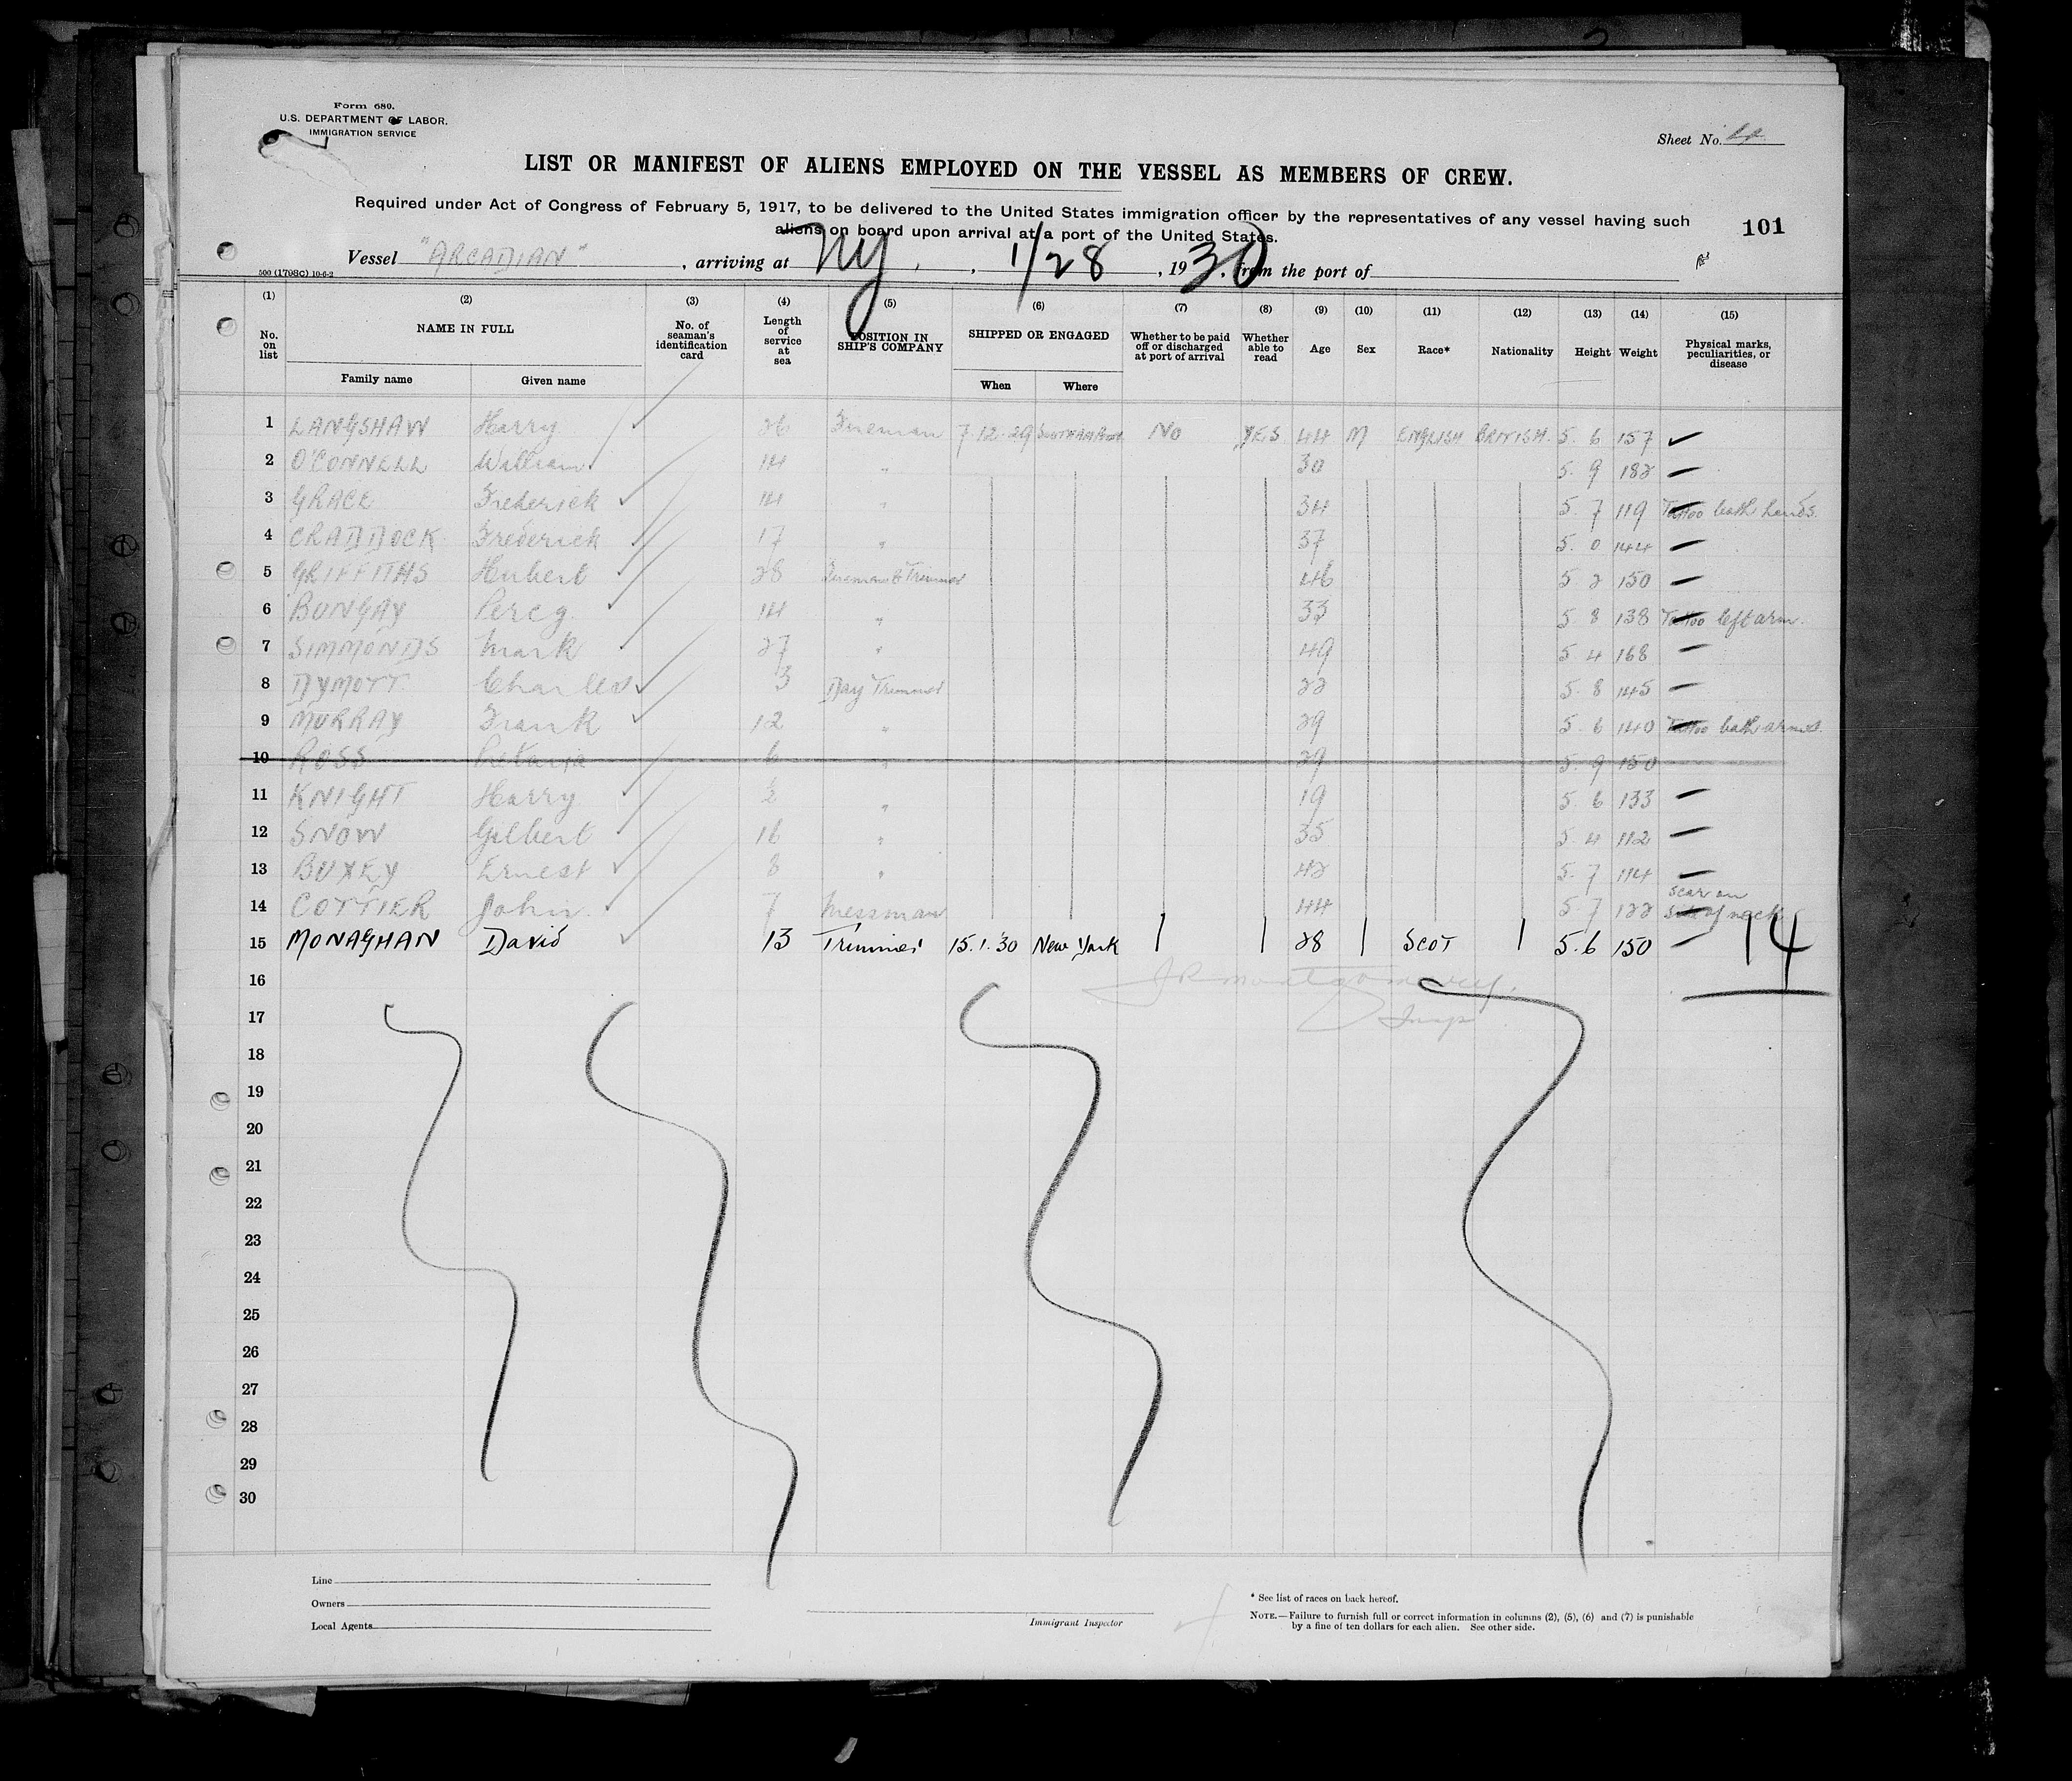 Form 680.
U.S. DEPARTMENT OF LABOR.
IMMIGRATION SERVICE
Sheet No.
LIST OR MANIFEST OF ALIENS EMPLOYED ON THE VESSEL AS MEMBERS OF CREW.
Required under Act of Congress of February 5, 1917, to be delivered to the United States immigration officer by the representatives of any vessel having such
aliens on board upon arrival at a port of the United States.
101
Vessel "ARCADIAN", arriving at NY, 1/28, 1930, from the port of
500 (1798C) 10-6-2
(1) (2) (3) (4) (5) (6) (7) (8) (9) (10) (11) (12) (13) (14) (15)
No. on list NAME IN FULL Family name Given name No. of seaman's identification card Length of service at sea POSITION IN SHIP'S COMPANY SHIPPED OR ENGAGED When Where Whether to be paid off or discharged at port of arrival Whether able to read Age Sex Race* Nationality Height Weight Physical marks, peculiarities, or disease
1 LANGSHAW Harry 26 Fireman 7.12.29 Southampton NO YES 44 M ENGLISH BRITISH. 5. 6 157
2 O'CONNELL William 14 " 30 5. 9 182
3 GRACE Frederick 14 " 34 5. 7 119 Tattoo both hands.
4 CRADDOCK Frederick 17 " 37 5. 0 144
5 GRIFFITHS Hubert 28 Fireman & Trimmer 46 5 2 150
6 BUNGAY Percy. 14 " 33 5 8 138 Tattoo left arm.
7 SIMMONDS Mark 27 " 49 5 4 168
8 DYMOTT Charles 3 Day Trimmer 22 5. 8 145
9 MURRAY Frank 12 " 29 5. 6 140 Tattoo both arms.
10 ROSS 6 " 29 5. 9 150
11 KNIGHT Harry 2 " 19 5. 6 133
12 SNOW Gilbert 16 " 35 5. 4 112
13 BUXEY Ernest 8 " 42 5. 7 114
14 COTTIER John. 7 Messman 44 5 7 122 Scar on side of neck
15 MONAGHAN David 13 Trimmer 15.1.30 New York 28 SCOT 5.6 150
14
16
JR Montgomery.
17
Insp
18
19
20
21
22
23
24
25
26
27
28
29
30
Line
Owners
Local Agents
Immigrant Inspector
* See list of races on back hereof.
NOTE.—Failure to furnish full or correct information in columns (2), (5), (6) and (7) is punishable
by a fine of ten dollars for each alien. See other side.